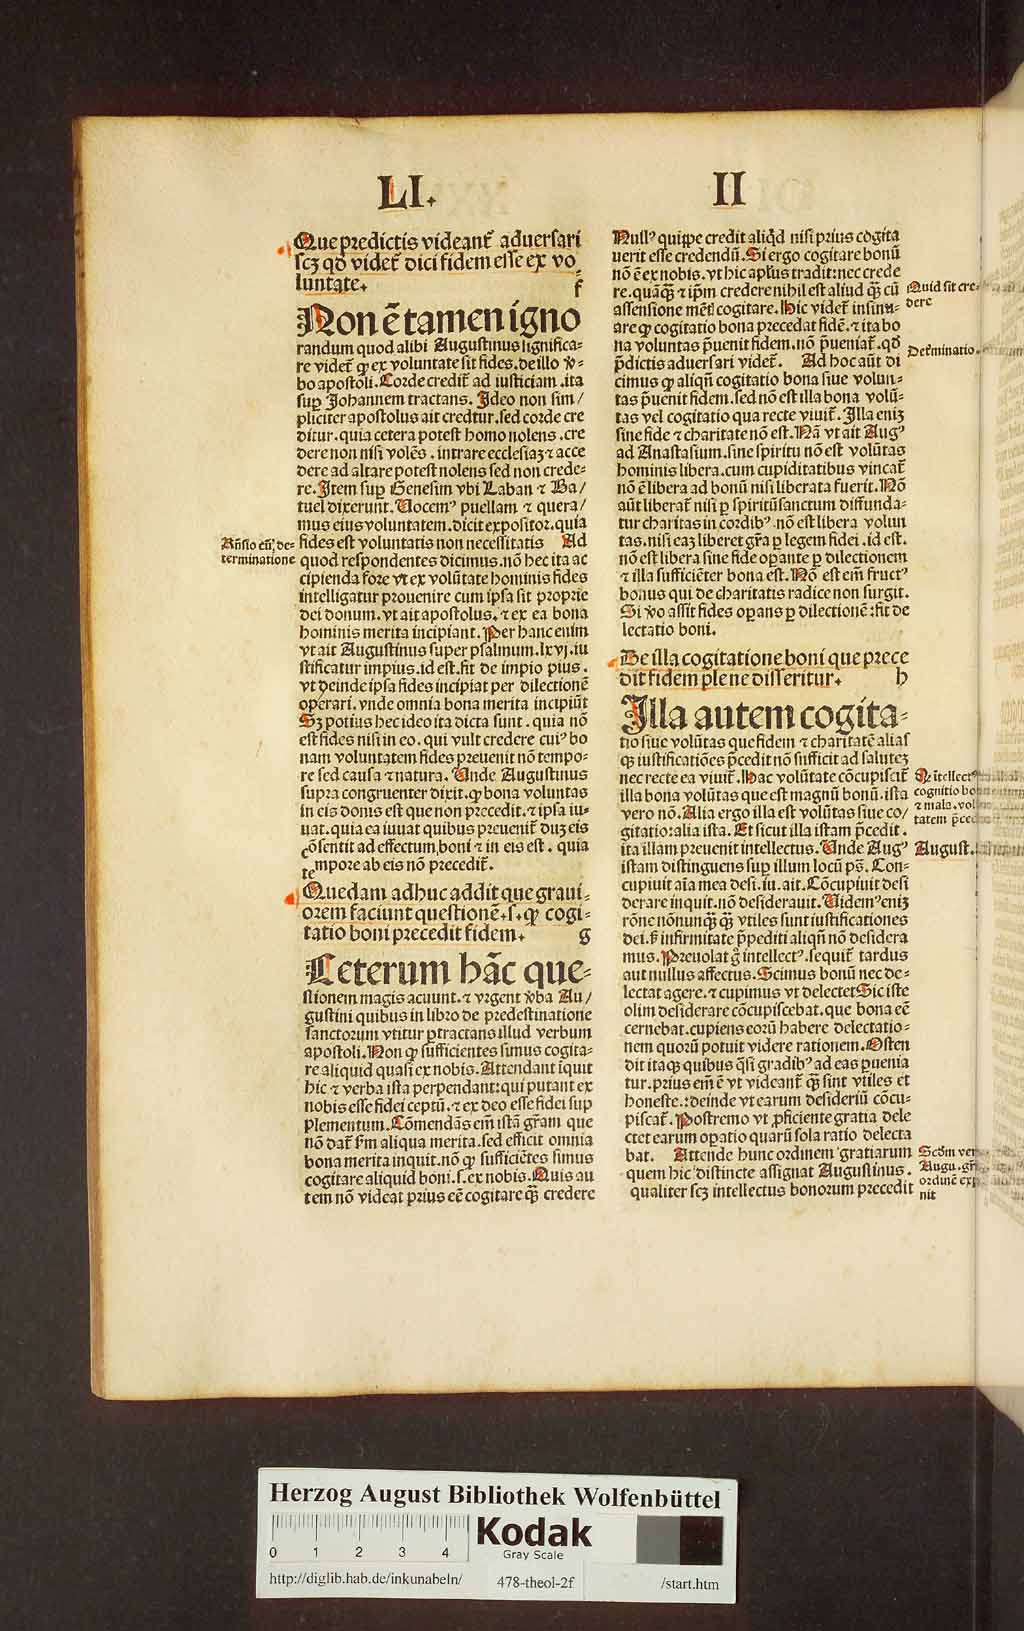 LI.
II
Que predictis videant᷑ aduersari
scꝫ qđ videt᷑ dici fidem esse ex vo-
luntate. f
Non ē tamen igno
randum quod alibi Augustinus significa-
re videt᷑ ꝙ ex voluntate sit fides. de illo v̾-
bo apostoli. Corde credit᷑ ad iusticiam. ita
suꝑ Johannem tractans. Ideo non sim/
pliciter apostolus ait credtur. sed corde cre
ditur. quia cetera potest homo nolens. cre
dere non nisi volēs. intrare ecclesiaꝫ ⁊ acce
dere ad altare potest nolens sed non crede-
re. Item suꝑ Genesim vbi Laban ⁊ Ba/
tuel dixerunt. Uocemꝰ puellam ⁊ quera/
mus eius voluntatem. dicit expositor. quia
fides est voluntatis non necessitatis Ad
quod respondentes dicimus. nō hec ita ac
cipienda fore vt ex volūtate hominis fides
intelligatur prouenire cum ipsa sit proprie
dei donum. vt ait apostolus. ⁊ ex ea bona
hominis merita incipiant. Per hanc enim
vt ait Augustinus super psalmum. lxvj. iu
stificatur impius. id est. fit de impio pius.
vt deinde ipsa fides incipiat per dilectionē
operari. vnde omnia bona merita incipiūt
Sꝫ potius hec ideo ita dicta sunt. quia nō
est fides nisi in eo. qui vult credere cuiꝰ bo
nam voluntatem fides preuenit nō tempo-
re sed causa ⁊ natura. Unde Augustinus
supra congruenter dixit. ꝙ bona voluntas
in eis donis est que non precedit. ⁊ ipsa iu-
uat. quia ea iuuat quibus preuenit᷑ duꝫ eis
cōsentit ad effectum boni ⁊ in eis est. quia
tempore ab eis nō precedit᷑.
Quedam adhuc addit que graui-
orem faciunt questionē. s. ꝙ cogi-
tatio boni precedit fidem. g
Ceterum hāc que-
stionem magis acuunt. ⁊ vrgent v̾ba Au/
gustini quibus in libro de predestinatione
sanctorum vtitur ꝑtractans illud verbum
apostoli. Non ꝙ sufficientes simus cogita-
re aliquid quasi ex nobis. Attendant īquit
hic ⁊ verba ista perpendant: qui putant ex
nobis esse fidei ceptū. ⁊ ex deo esse fidei sup
plementum. Cōmendās eīm istā gr̄am que
nō dat᷑ s̄m aliqua merita. sed efficit omnia
bona merita inquit. nō ꝙ sufficiētes simus
cogitare aliquid boni. s. ex nobis. Quis au
tem nō videat prius eē cogitare qꝫ̄ credere
Rn̄sio cū de-
terminatione
Nullꝰ quippe credit aliqđ nisi prius cogita
uerit esse credendū. Si ergo cogitare bonū
nō ē ex nobis. vt hic apl̄us tradit: nec crede
re. quāqꝫ̄ ⁊ ip̄m credere nihil est aliud qꝫ̄ cū
assensione mēti cogitare. Hic videt᷑ insinu-
are ꝙ cogitatio bona precedat fidē. ⁊ ita bo
na voluntas p̄uenit fidem. nō p̄ueniat᷑. qđ
p̄dictis aduersari videt᷑. Ad hoc aūt di
cimus ꝙ aliqn̄ cogitatio bona siue volun-
tas p̄uenit fidem. sed nō est illa bona volū-
tas vel cogitatio qua recte viuit᷑. Illa eniꝫ
sine fide ⁊ charitate nō est. Nā vt ait Augꝰ
ad Anastasium. sine spiritu nō est volūtas
hominis libera. cum cupiditatibus vincat᷑
nō ē libera ad bonū nisi liberata fuerit. Nō
aūt liberat᷑ nisi ꝑ spiritūsanctum diffunda-
tur charitas in cordibꝰ. nō est libera volun
tas. nisi eaꝫ liberet gr̄a ꝑ legem fidei. id est.
nō est libera sine fide oꝑante ꝑ dilectionem
⁊ illa sufficiēter bona est. Nō est eīm fructꝰ
bonus qui de charitatis radice non surgit.
Si v̾o assit fides oꝑans ꝑ dilectionē: fit de
lectatio boni.
De illa cogitatione boni que prece
dit fidem plene disseritur. h
Illa autem cogita-
tio siue volūtas que fidem ⁊ charitatē alias
qꝫ iustificatiōes p̄cedit nō sufficit ad salutēꝫ
nec recte ea viuit᷑. Hac volūtate cōcupiscit᷑
illa bona volūtas que est magnū bonū. ista
vero nō. Alia ergo illa est volūtas siue co/
gitatio: alia ista. Et sicut illa istam p̄cedit.
ita illam preuenit intellectus. Unde Augꝰ
istam distinguens suꝑ illum locū ps̄. Con-
cupiuit aīa mea desi. iu. ait. Cōcupiuit desi
derare inquit. nō desiderauit. Uidemꝰ eniꝫ
rōne nōnunqꝫ̄ qꝫ̄ vtiles sunt iustificationes
dei. s̄ infirmitate p̄pediti aliqn̄ nō desidera
mus. Preuolat g̊ intellectꝰ. sequit᷑ tardus
aut nullus affectus. Scimus bonū nec de-
lectat agere. ⁊ cupimus vt delectet Sic iste
olim desiderare cōcupiscebat. que bona eē
cernebat. cupiens eorū habere delectatio-
nem quorū potuit videre rationem. Osten
dit itaqꝫ quibus qͣsi gradibꝰ ad eas ꝑuenia
tur. prius eīm ē vt videant᷑ qꝫ̄ sint vtiles et
honeste.: deinde vt earum desideriū cōcu-
piscat᷑. Postremo vt ꝓficiente gratia dele
ctet earum oꝑatio quarū sola ratio delecta
bat. Attende hunc ordinem gratiarum
quem hic distincte assignat Augustinus.
qualiter scꝫ intellectus bonorum precedit
Quid sit cre-
dere
Det᷑minatio.
August.
Scd̄m ver
Augu. gr̄
ordinē exp
nit
Herzog August Bibliothek Wolfenbüttel
0 1 2 3 4
Kodak
Gray Scale
http://diglib.hab.de/inkunabeln/
478-theol-2f
/start.htm